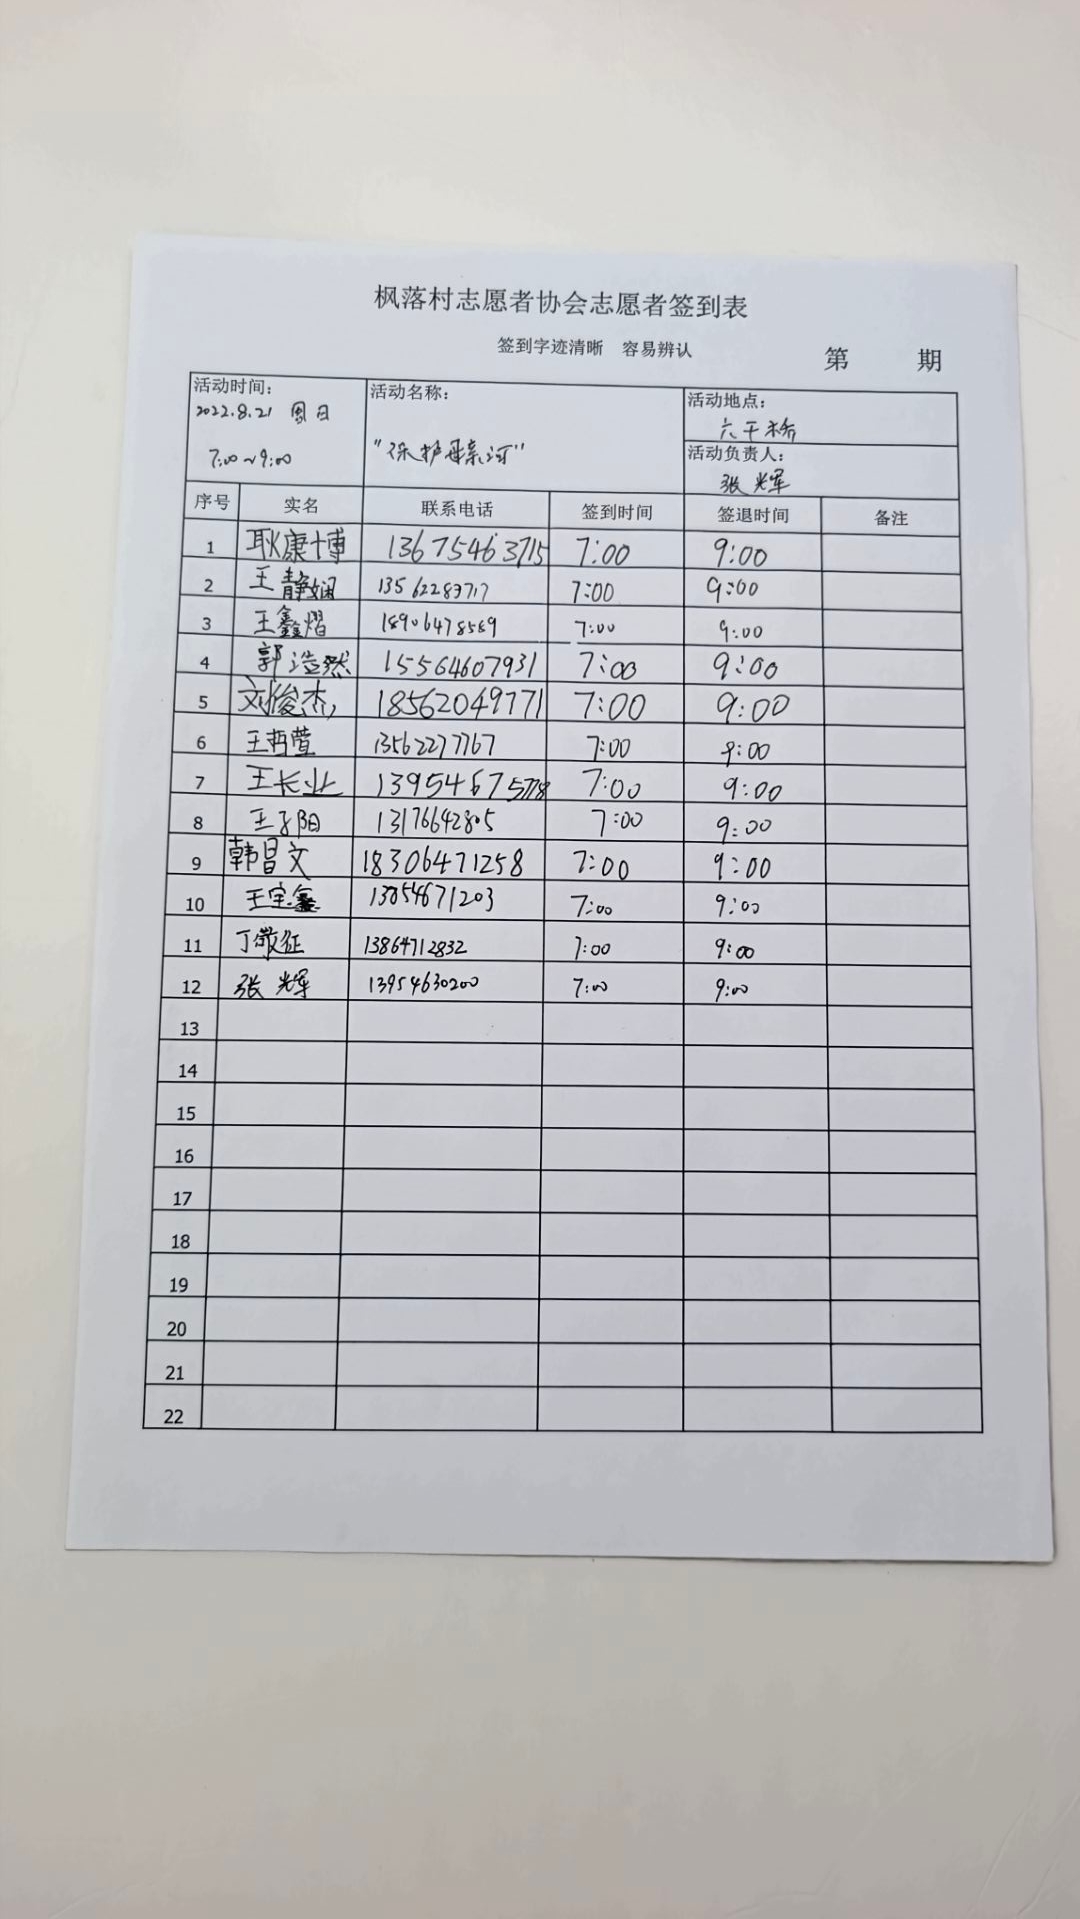 枫落村志愿者协会志愿者签到表
签到字迹清晰 容易辨认
第 期
活动时间: 活动名称: 活动地点:
2022.8.21 周日 六干桥
7:00~9:00 "保护母亲河" 活动负责人:
张辉
序号 实名 联系电话 签到时间 签退时间 备注
1 耿康博 13675463715 7:00 9:00
2 王静娴 13562283717 7:00 9:00
3 王鑫熠 18906478589 7:00 9:00
4 郭浩然 15564607931 7:00 9:00
5 刘俊杰 18562049771 7:00 9:00
6 王哲萱 13562277767 7:00 9:00
7 王长业 13954675778 7:00 9:00
8 王子阳 13176642805 7:00 9:00
9 韩昌文 18306471258 7:00 9:00
10 王宝鑫 13854671203 7:00 9:00
11 丁敬征 13864712832 7:00 9:00
12 张辉 13954630200 7:00 9:00
13
14
15
16
17
18
19
20
21
22